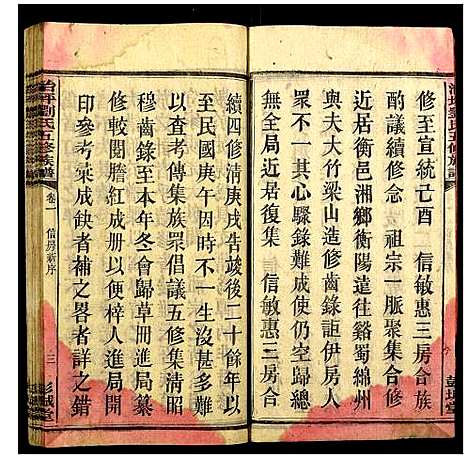 修至宣統己酉　信敏惠三房合族
酌議續修念　祖宗一脈聚集合修
近居衡邑湘鄉衡陽遠往谿蜀綿州
與夫大竹梁山造修齒錄詎伊房人
眾人集本有不一難成使仍空歸總
無全局近居復集　信敏惠二房合
續四修清庚戌告竣後二十餘年以
至民國庚午因時不一生齒甚多難
以查考傳集族眾倡議五修集清昭
穆齒錄至本年冬會歸草冊進局纂
修較閱謄紅成本便梓人進局開
印參考業成缺者補之畧者詳之錯
治坪劉氏五修族譜
卷一　信房新序
三　彭城堂